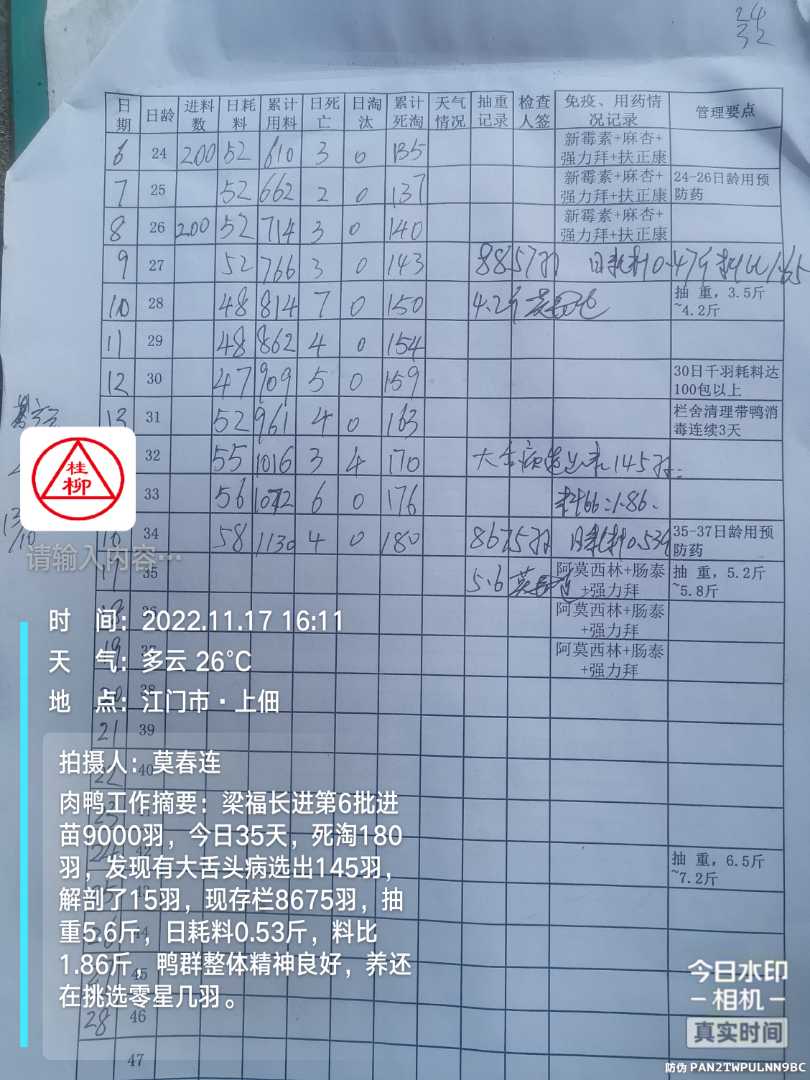 24
32
日期 日龄 进料数 日耗料 累计用料 日死亡 日淘汰 累计死淘 天气情况 抽重记录 检查人签 免疫、用药情况记录 管理要点
6 24 200 52 610 3 0 135 新霉素+麻杏+强力拜+扶正康
7 25 52 662 2 0 137 新霉素+麻杏+强力拜+扶正康 24-26日龄用预防药
8 26 200 52 714 3 0 140 新霉素+麻杏+强力拜+扶正康
9 27 52 766 3 0 143 8857羽 日耗料0.47斤 料比1.65
10 28 48 814 7 0 150 4.2斤 抽 重，3.5斤~4.2斤
11 29 48 862 4 0 154
12 30 47 909 5 0 159 30日千羽耗料达100包以上
13 31 52 961 4 0 163 栏舍清理带鸭消毒连续3天
32 55 1016 3 4 170 大舌病选出来145羽
33 56 1072 6 0 176 料比:1.86.
16 34 58 1130 4 0 180 8675羽 日耗料0.53斤 35-37日龄用预防药
17 35 5.6 阿莫西林+肠泰+强力拜 抽 重，5.2斤~5.8斤
18 36 阿莫西林+肠泰+强力拜
19 37 阿莫西林+肠泰+强力拜
20 38
21 39
22 40
42 抽 重，6.5斤~7.2斤
45
28 46
47
13/10
桂柳
请输入内容…
时 间：2022.11.17 16:11
天 气：多云 26℃
地 点：江门市·上佃
拍摄人：莫春连
肉鸭工作摘要：梁福长进第6批进
苗9000羽，今日35天，死淘180
羽，发现有大舌头病选出145羽，
解剖了15羽，现存栏8675羽，抽
重5.6斤，日耗料0.53斤，料比
1.86斤，鸭群整体精神良好，养还
在挑选零星几羽。
今日水印
相机
真实时间
防伪 PAN2TWPULNN9BC